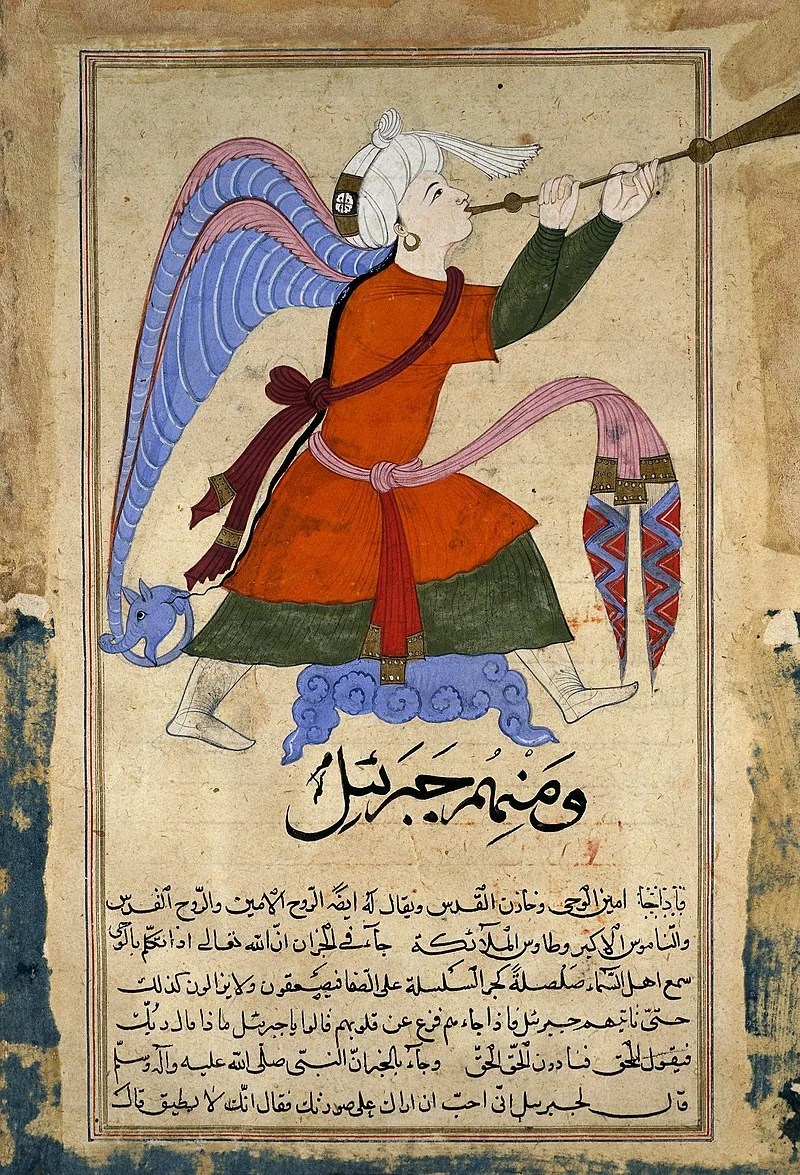 ومنهم جبرئيل
امين الوحى وخازن القدس ويقال له ايضًا الروح الامين والرّوح القدس
والنّاموس الاكبر وطاوس الملآئكة جآء فى الخبر ان الله تعالى اذا تكلم بالوحى
سمع اهل السّماء صلصلةً كجر السّلسلة على الصفا فيصعقون ولا يزالون كذلك
حتّى ياتيهم جبرئيل فاذا جاءهم فزع عن قلوبهم قالوا يا جبرئيل ماذا قال ربّك
فيقول الحق فينادون الحقّ الحقّ وجآء بالخبر انّ النبّى صلّى الله عليه وآله وسلّم
قال لجبرئيل انّى احبّ ان اراك على صورتك فقال انّك لا تطيق قال